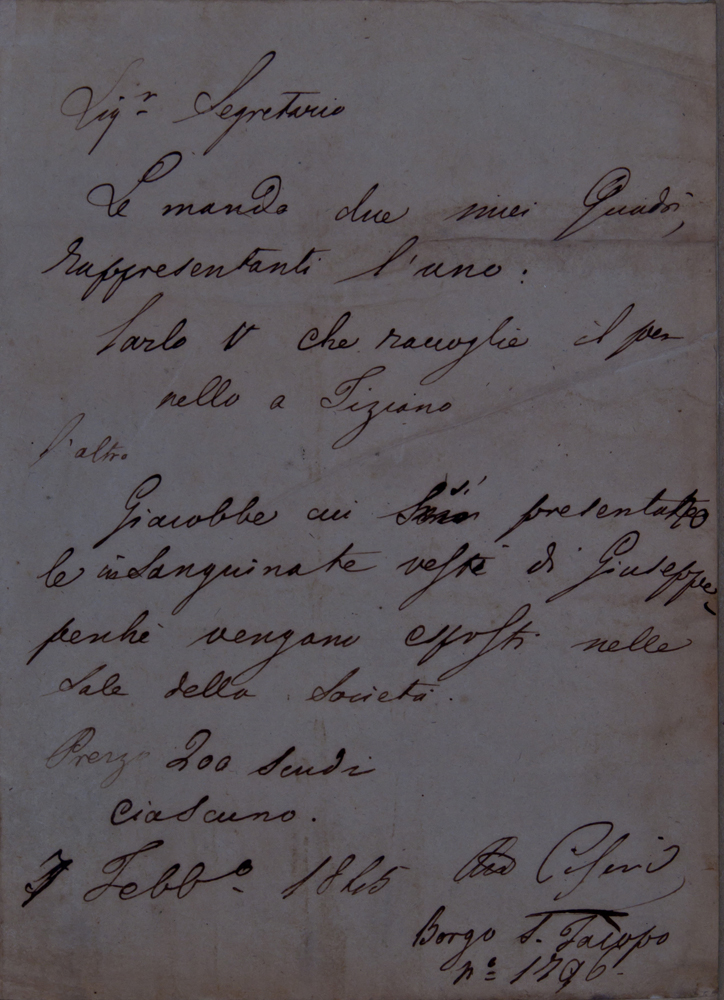 Sig.r Segretario
Le mando due miei Quadri,
rappresentanti l'uno:
Carlo V che raccoglie il pen
nello a Tiziano
l'altro
Giacobbe cui si presentano
le insanguinate vesti di Giuseppe,
perchè vengano esposti nelle
Sale della Società.
Prezzo 200 Scudi
ciascuno.
7 Febb.o 1845
Borgo S. Jacopo
n.o 1796.